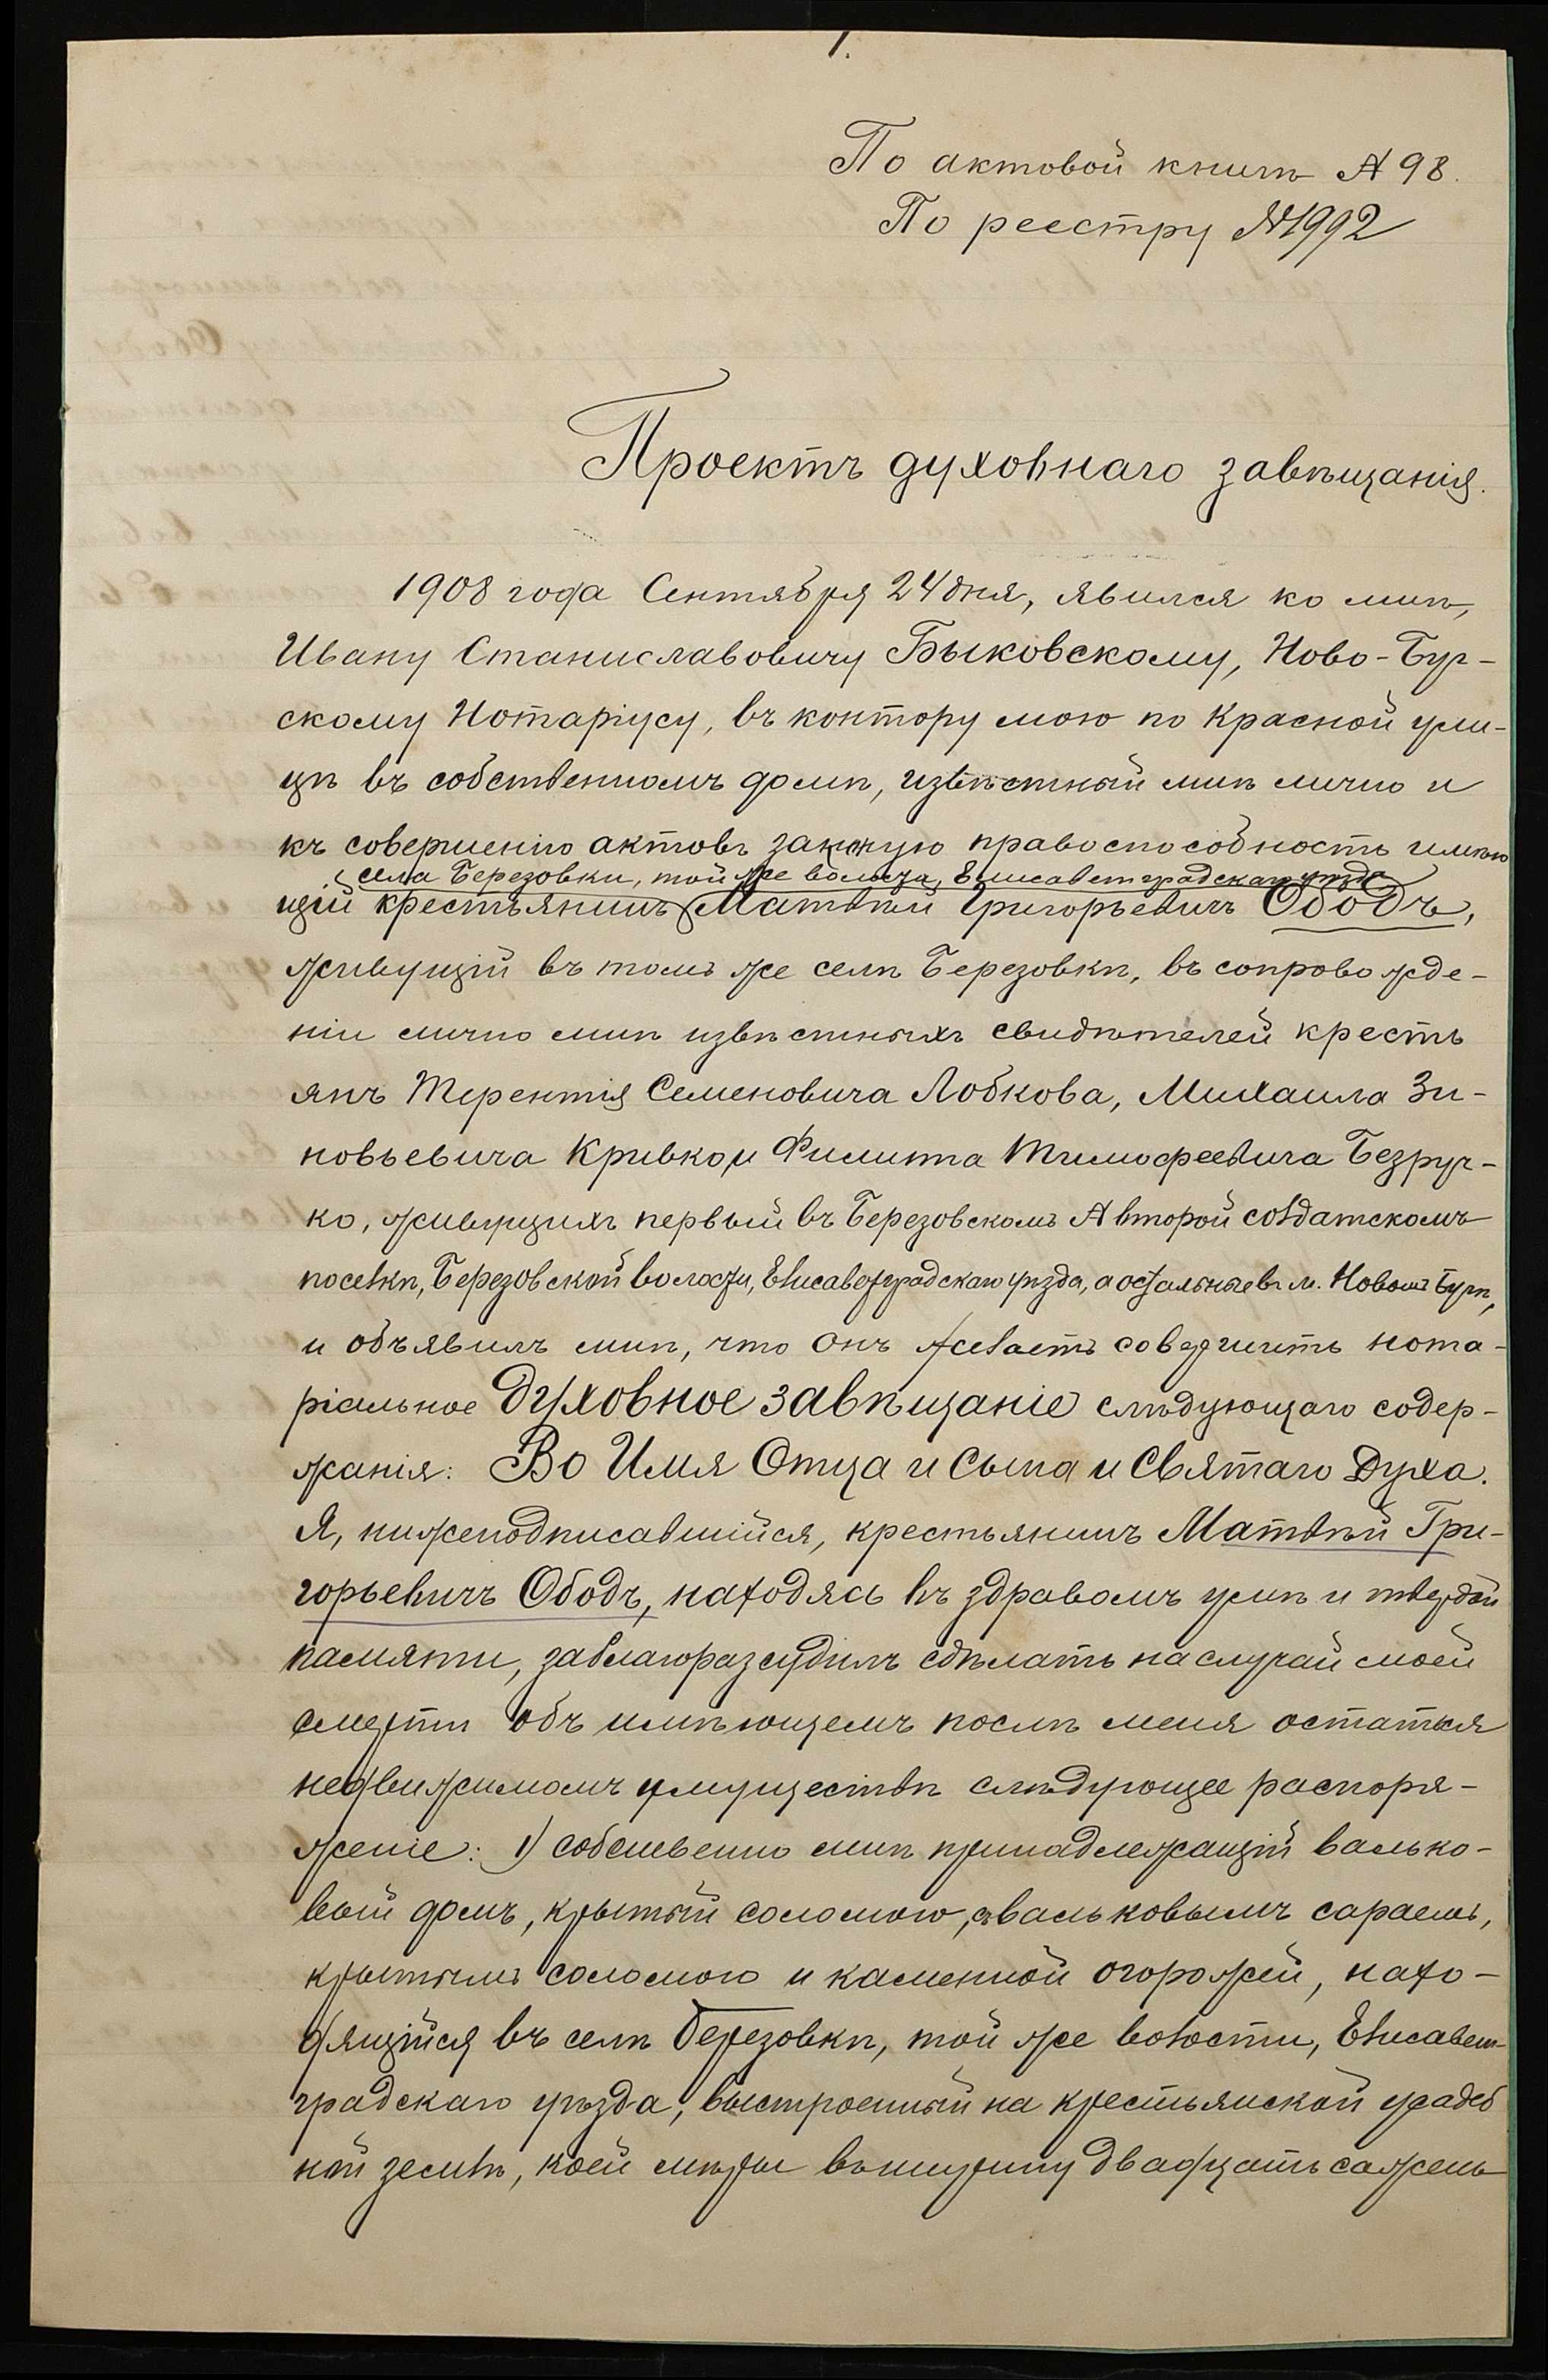 1.
По актовой книгѣ № 98.
По реестру № 1992
Проектъ духовнаго завѣщанія.
1908 года Сентября 24 дня, явился ко мнѣ,
Ивану Станиславовичу Быковскому, Ново-Буг-
скому Нотаріусу, въ контору мою по Красной ули-
цѣ въ собственномъ домѣ, извѣстный мнѣ лично и
къ совершенію актовъ законную правоспособность имѣю
села Березовки, той же волости, Елисаветградскаго уѣзда
щій крестьянинъ Матвѣй Григорьевичъ Ободъ,
живущій въ томъ же селѣ Березовкѣ, въ сопровожде-
ніи лично мнѣ извѣстныхъ свидѣтелей кресть
янъ Терентія Семеновича Лобкова, Михаила Зи-
новьевича Кривко и Филиппа Тимофеевича Безруч-
ко, живущихъ первый въ Березовскомъ А второй солдатскомъ
поселкѣ, Березовской волости, Елисаветградскаго уѣзда, а остальные въ м. Новомъ Бугѣ,
и объявилъ мнѣ, что онъ желаетъ совершить нота-
ріальное Духовное завѣщаніе слѣдующаго содер-
жанія: Во Имя Отца и Сына и Святаго Духа.
Я, нижеподписавшійся, крестьянинъ Матвѣй Гри-
горьевичъ Ободъ, находясь въ здравомъ умѣ и твердой
памяти, заблагоразсудилъ сдѣлать на случай моей
смерти объ имѣющемъ послѣ меня остаться
недвижимомъ имуществѣ слѣдующее распоря-
женіе: 1) собственно мнѣ принадлежащій валько-
вый домъ, крытый соломою, съ вальковымъ сараемъ,
крытымъ соломою и каменной огорожей, нахо-
дящійся въ селѣ Березовкѣ, той же волости, Елисавет-
градскаго уѣзда, выстроенный на крестьянской усадеб
ной землѣ, коей мѣры въ ширину двадцать сажень